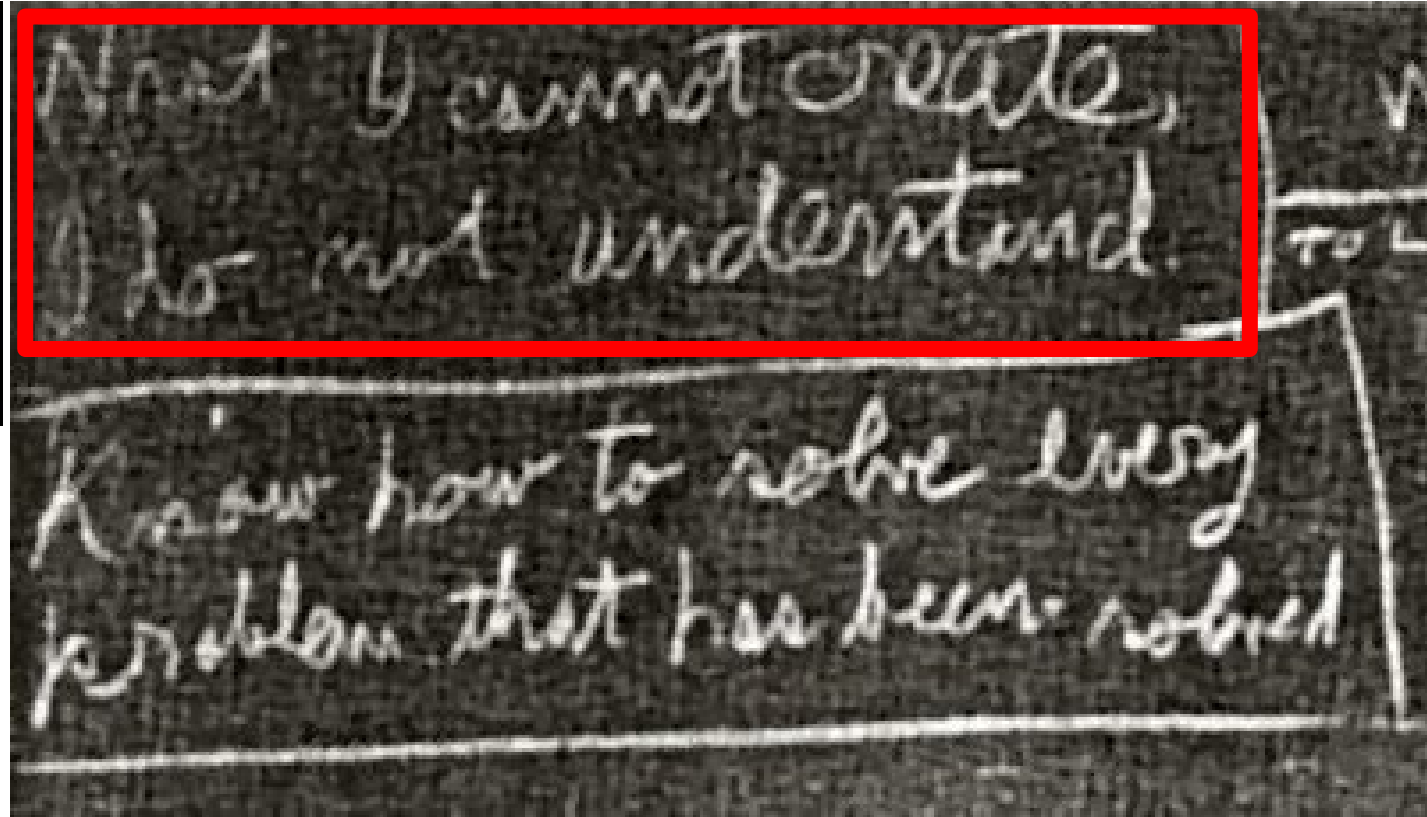 What I cannot create,
I do not understand.
TO L
Know how to solve every
problem that has been solved